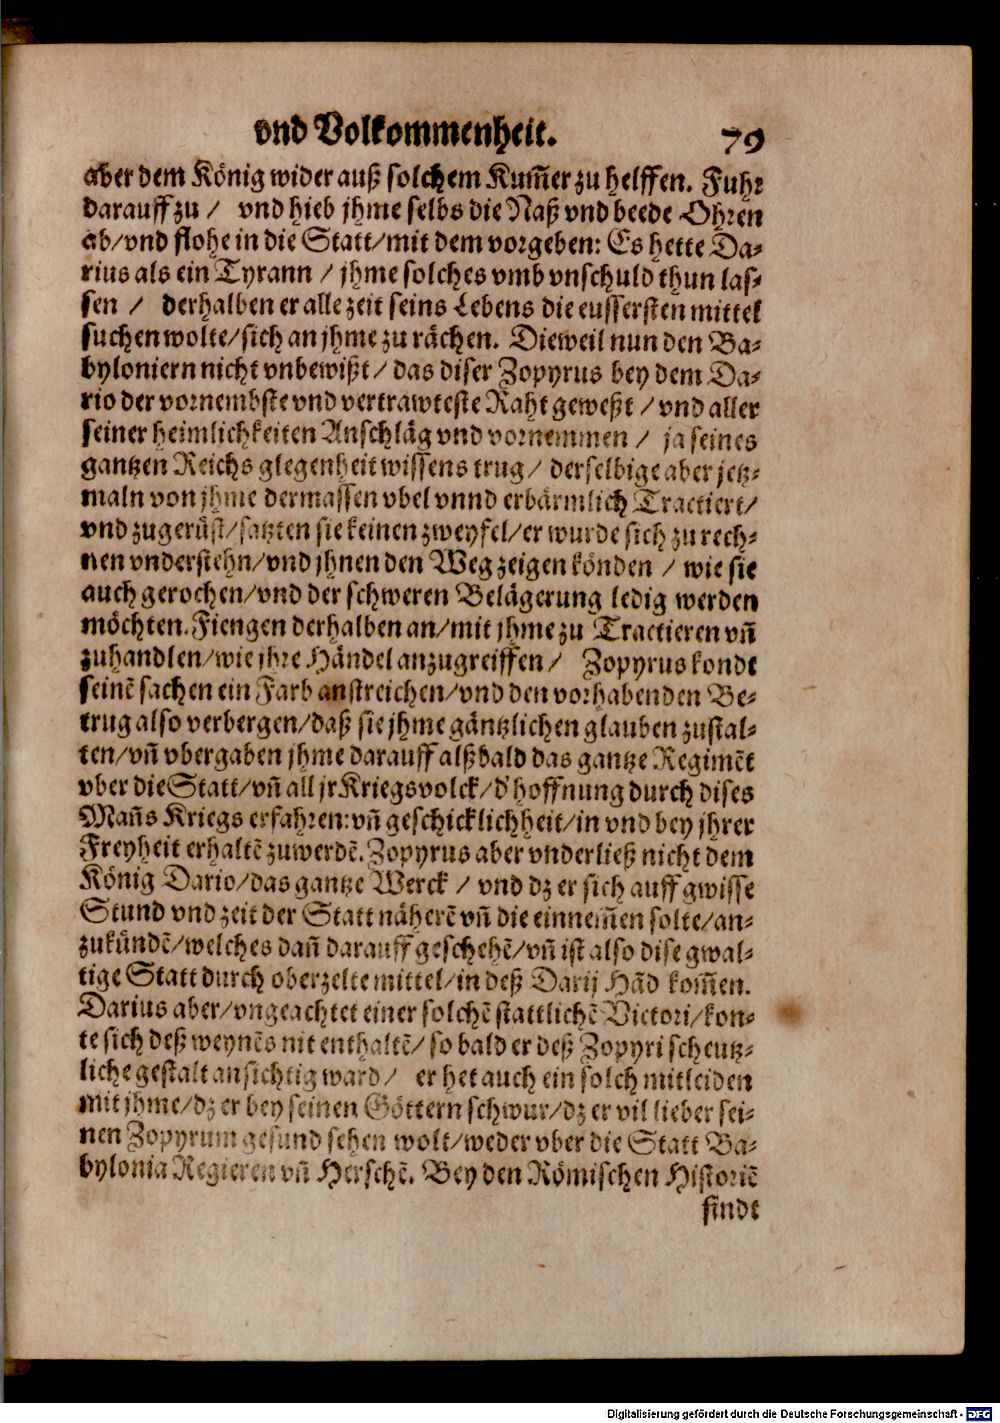 vnd Volkommenheit. 79
aber dem König wider auß solchem Kum̃er zu helffen. Fuhr
darauff zu / vnd hieb jhme selbs die Naß vnd beede Ohren
ab/vnd flohe in die Statt/mit dem vorgeben: Es hette Da⸗
rius als ein Tyrann / jhme solches vmb vnschuld thun las⸗
sen / derhalben er alle zeit seins Lebens die eussersten mittel
suchen wolte/sich an jhme zu rächen. Dieweil nun den Ba⸗
byloniern nicht vnbewißt / das diser Zopyrus bey dem Da⸗
rio der vornembste vnd vertrawteste Raht geweßt / vnd aller
seiner heimlichkeiten Anschläg vnd vornemmen / ja seines
gantzen Reichs glegenheit wissens trug / derselbige aber jetz⸗
maln von jhme dermassen vbel vnnd erbärmlich Tractiert/
vnd zugerüst/satzten sie keinen zweyfel/er wurde sich zu rech⸗
nen vnderstehn/vnd jhnen den Weg zeigen könden / wie sie
auch gerochen/vnd der schweren Belägerung ledig werden
möchten. Fiengen derhalben an/mit jhme zu Tractieren vñ
zuhandlen/wie jhre Händel anzugreiffen / Zopyrus kondt
seinẽ sachen ein Farb anstreichen/vnd den vorhabenden Be⸗
trug also verbergen/daß sie jhme gäntzlichen glauben zustal⸗
ten/vñ vbergaben jhme darauff alßbald das gantze Regimẽt
vber die Statt/vñ all jr Kriegsvolck/d' hoffnung durch dises
Mañs Kriegs erfahren: vñ geschicklichheit/in vnd bey jhrer
Freyheit erhaltẽ zuwerdẽ. Zopyrus aber vnderließ nicht dem
König Dario/das gantze Werck / vnd dz er sich auff gwisse
Stund vnd zeit der Statt näherẽ vñ die einnem̃en solte/an⸗
zukündẽ/welches dañ darauff geschehẽ/vñ ist also dise gwal⸗
tige Statt durch oberzelte mittel/in deß Darij Hãd kom̃en.
Darius aber/vngeachtet einer solchẽ stattlichẽ Victori/kon⸗
te sich deß weynẽs nit enthaltẽ/so bald er deß Zopyri scheutz⸗
liche gestalt ansichtig ward / er het auch ein solch mitleiden
mit jhme/dz er bey seinen Göttern schwur/dz er vil lieber sei⸗
nen Zopyrum gesund sehen wolt/weder vber die Statt Ba⸗
bylonia Regieren vñ Herschẽ. Bey den Römischen Historiẽ
findt
Digitalisierung gefördert durch die Deutsche Forschungsgemeinschaft - DFG